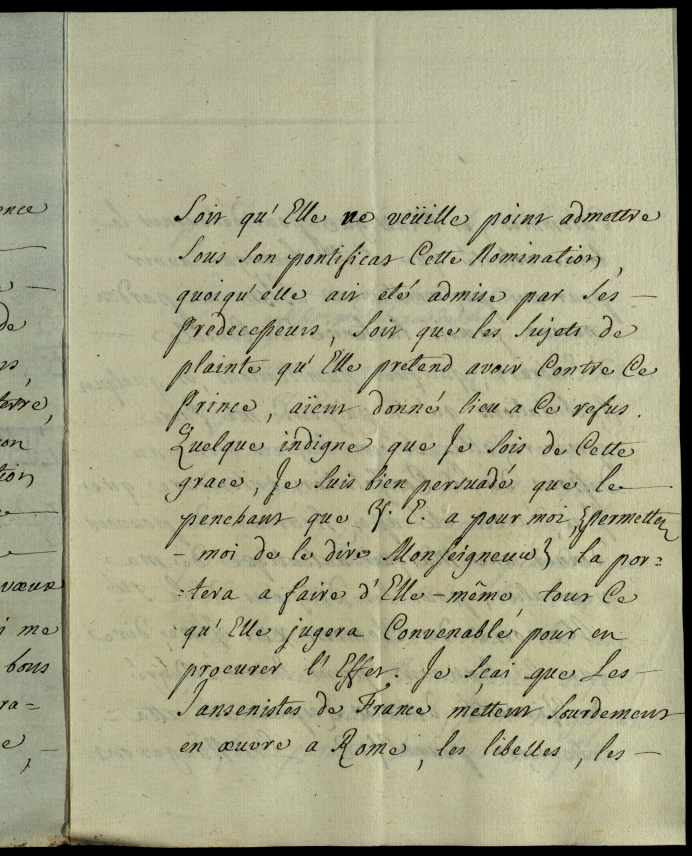 ence
de
rs,
tere,
on
tion
vœux
i me
bons
ra=
e,
Soit qu'Elle ne veüille point admettre
Sous Son pontificat Cette Nomination,
quoiqu'elle ait eté admise par Ses
Predecesseurs, Soit que les Sujets de
plainte qu'Elle pretend avoir Contre Ce
Prince, aïent donné lieu a Ce refus.
Quelque indigne que Je Sois de Cette
grace, Je Suis bien persuadé que le
penchant que V. E. a pour moi, {permettez
-moi de le dire Monseigneur} la por=
=tera a faire d'Elle-même, tout Ce
qu'Elle jugera Convenable pour en
procurer l'Effet. Je Sçai que Les
Jansenistes de France mettent Sourdement
en œuvre a Rome, les libelles, les